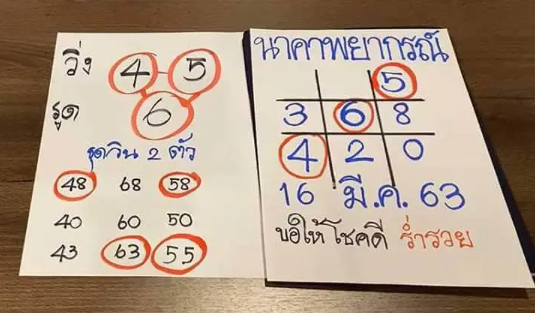 วิ่ง 4 - 5
รูด 6
ชุดวิน 2 ตัว
48 68 58
40 60 50
43 63 55
นาคาพยากรณ์
5
3 6 8
4 2 0
16 มี.ค. 63
ขอให้โชคดี ร่ำรวย